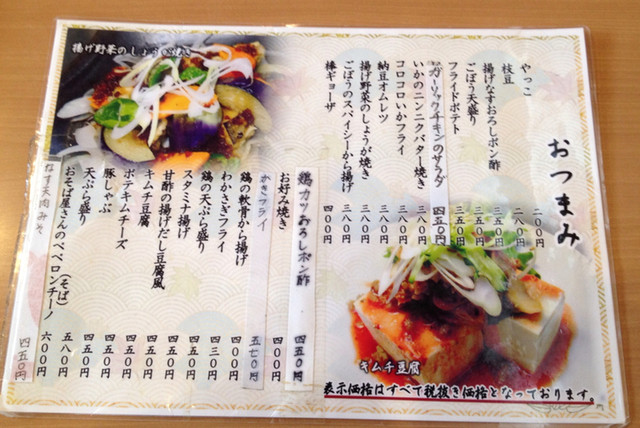 おつまみ
やっこ 二〇〇円
枝豆 二〇〇円
揚げなすおろしポン酢 三五〇円
ごぼう天盛り 三五〇円
フライドポテト 三五〇円
ガーリックチキンのサラダ 四五〇円
いかのニンニクバター焼き 三八〇円
コロコロいかフライ 三八〇円
納豆オムレツ 三八〇円
揚げ野菜のしょうが焼き 三八〇円
ごぼうのスパイシーから揚げ 三八〇円
棒ギョーザ 四〇〇円
揚げ野菜のしょうが焼き
鶏カツおろしポン酢 四五〇円
お好み焼き 四〇〇円
かきフライ 五七〇円
鶏の軟骨から揚げ 四〇〇円
わかさぎフライ 四三〇円
鶏の天ぷら盛り 四五〇円
スタミナ揚げ 四五〇円
甘酢の揚げだし豆腐風 四五〇円
キムチ豆腐 四五〇円
ポテキムチーズ 四五〇円
豚しゃぶ 四五〇円
天ぷら盛り 五八〇円
おそば屋さんのペペロンチーノ(そば) 六〇〇円
なす天肉みそ 四五〇円
キムチ豆腐
表示価格はすべて税抜き価格となっております。